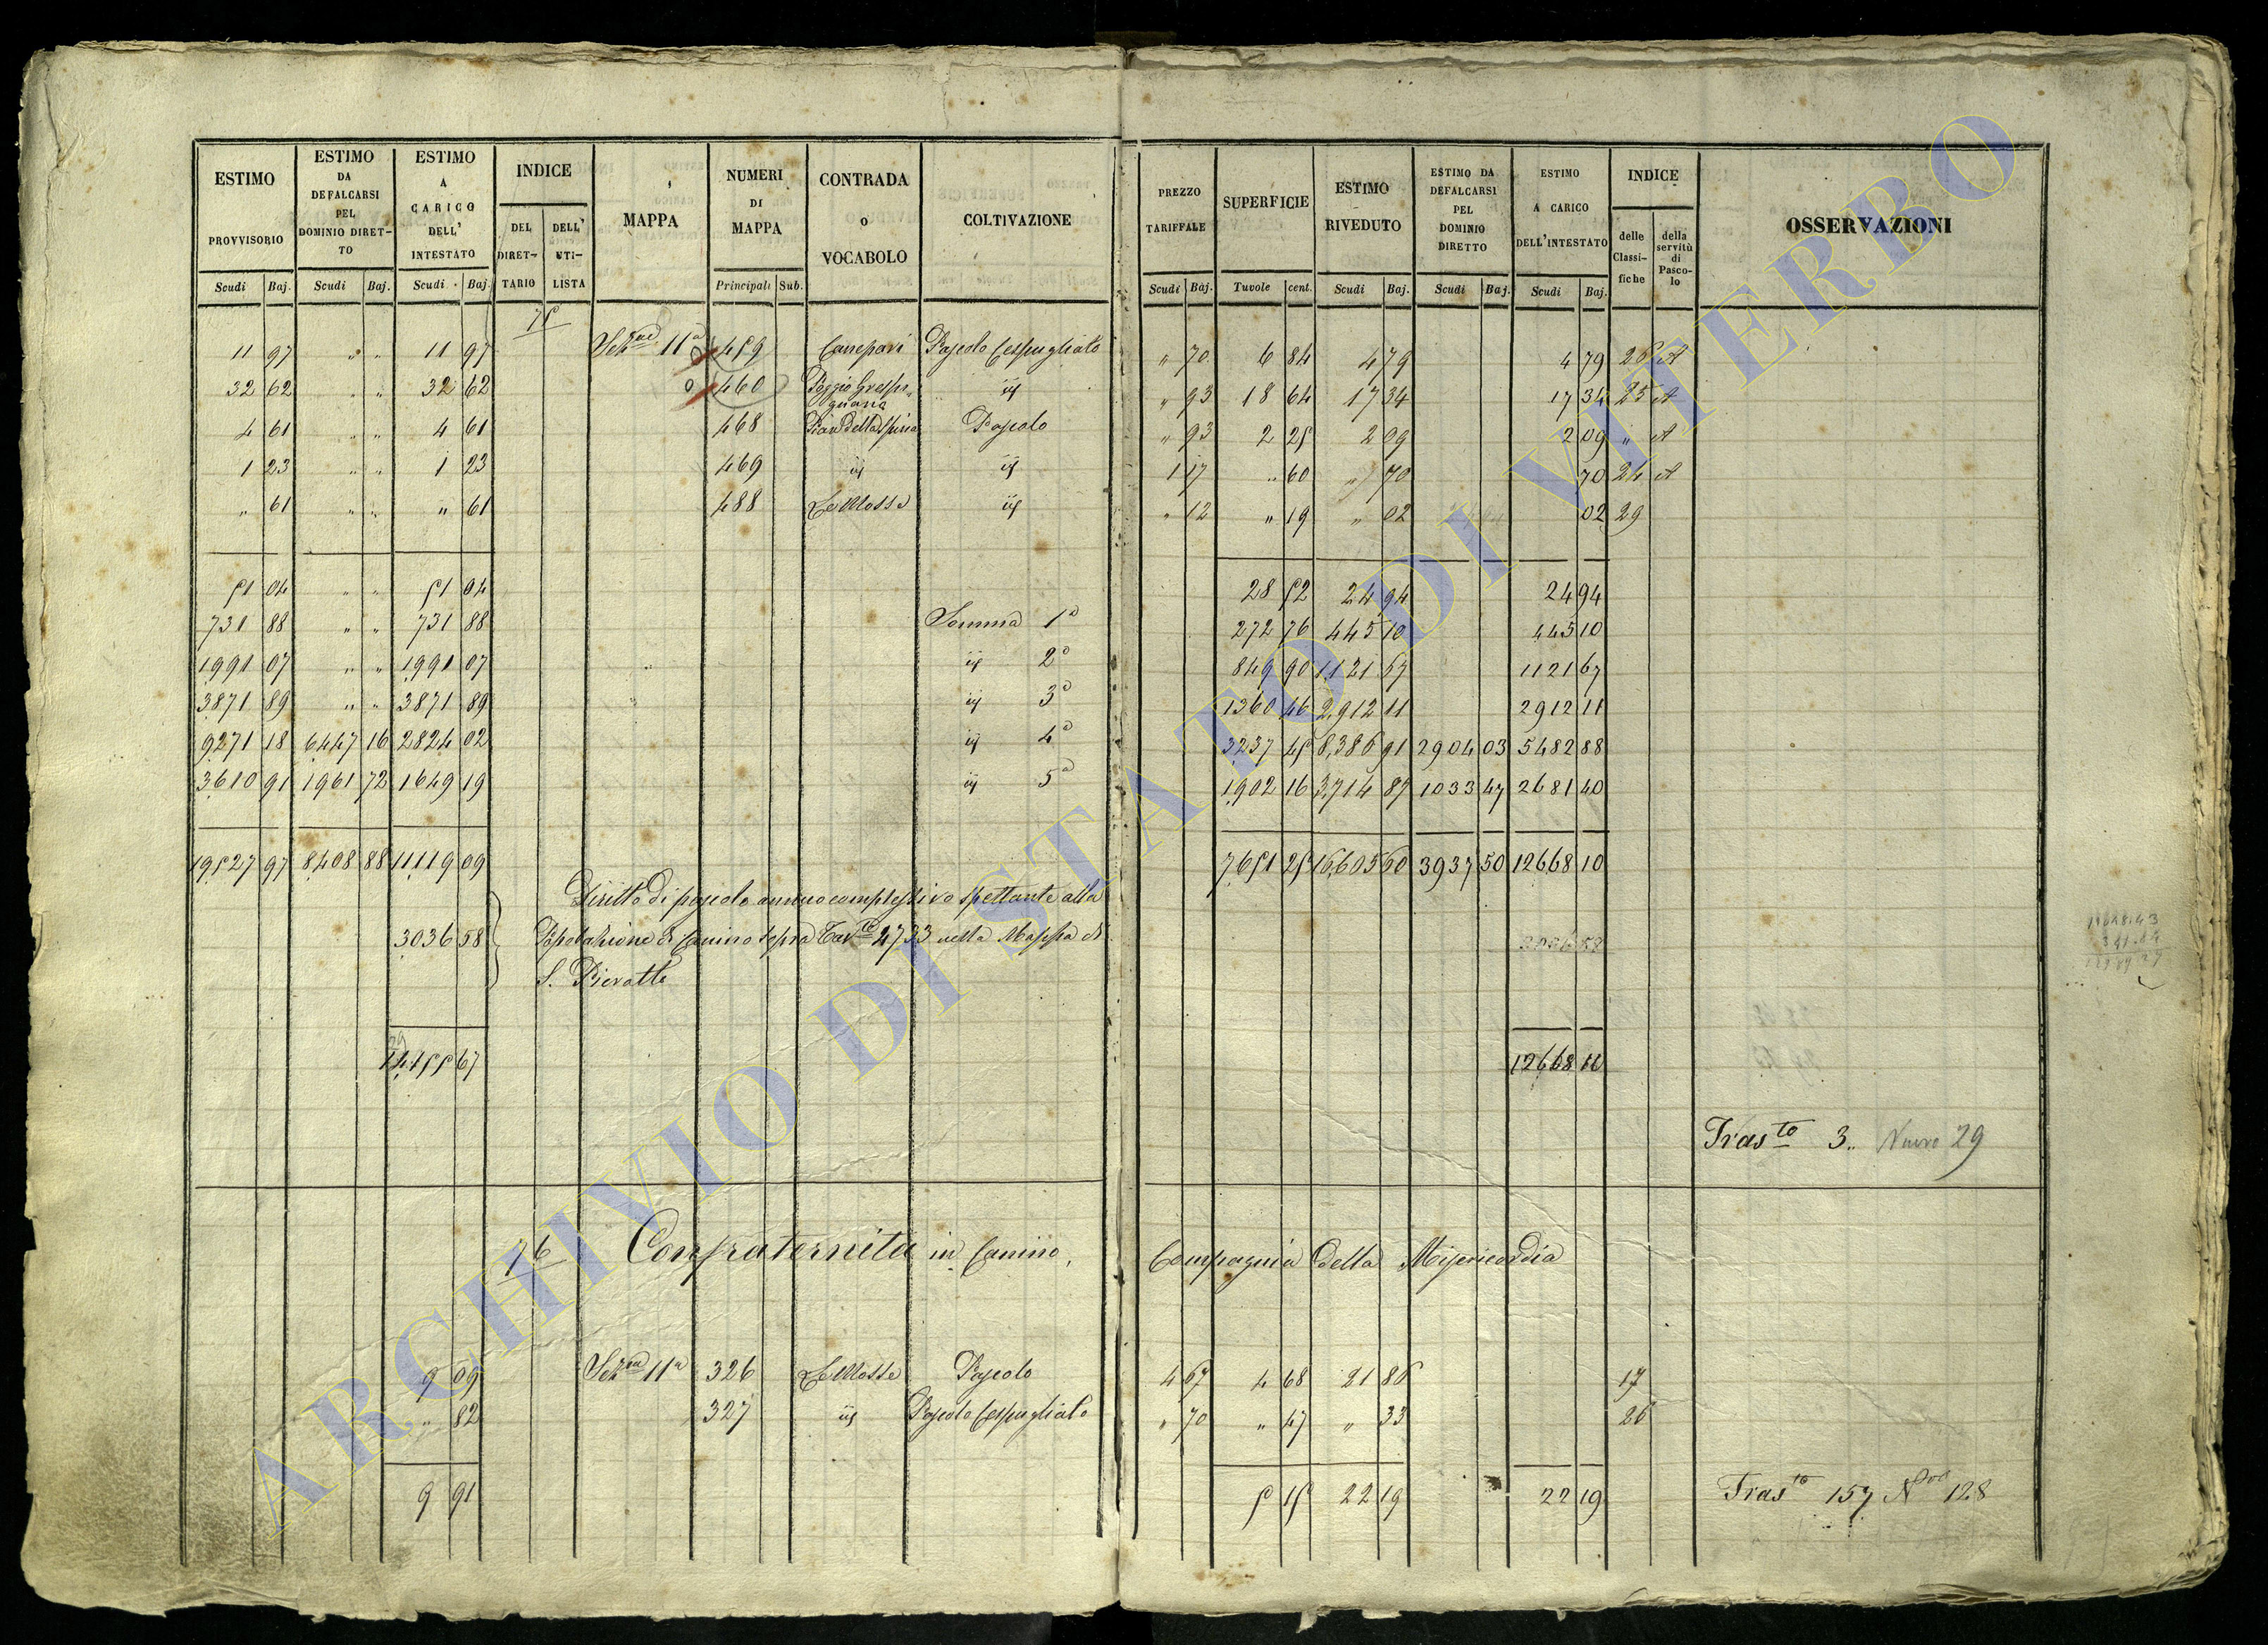 ESTIMO PROVVISORIO Scudi Baj.
ESTIMO DA DEFALCARSI PEL DOMINIO DIRET-TO Scudi Baj.
ESTIMO A CARICO DELL' INTESTATO Scudi Baj.
INDICE DEL DIRET-TARIO DELL' UTI-LISTA
MAPPA
NUMERI DI MAPPA Principali Sub.
CONTRADA o VOCABOLO
COLTIVAZIONE
PREZZO TARIFFALE Scudi Baj.
SUPERFICIE Tavole cent.
ESTIMO RIVEDUTO Scudi Baj.
ESTIMO DA DEFALCARSI PEL DOMINIO DIRETTO Scudi Baj.
ESTIMO A CARICO DELL'INTESTATO Scudi Baj.
INDICE delle Classi-fiche della servitù di Pasco-lo
OSSERVAZIONI
75
11 97 " " 11 97 Sezne 11a 459 Canepari Pascolo Cespugliato " 70 6 84 4 79 4 79 26 A
32 62 " " 32 62 460 Poggio " 93 18 64 17 34 17 34 25 A
4 61 " " 4 61 468 Pian della Spina Pascolo " 93 2 25 2 09 2 09 " A
1 23 " " 1 23 469 iij iij 1 17 " 60 " 70 70 24 A
" 61 " " " 61 488 Le Mosse iij " 12 " 19 " 02 02 29
51 04 " " 51 04 28 52 24 94 24 94
731 88 " " 731 88 Somma 1a 272 76 445 10 445 10
1991 07 " " 1991 07 iij 2a 849 90 1121 67 1121 67
3871 89 " " 3871 89 iij 3a 1360 46 2,912 11 2912 11
9271 18 6447 16 2824 02 iij 4a 3237 45 8,386 91 2904 03 5482 88
3610 91 1961 72 1649 19 iij 5a 1902 16 3,714 87 1033 47 2681 40
19527 97 8408 88 11119 09 7,651 25 16,605 60 3937 50 12668 10
Diritto di pascolo annuo complessivo spettante alla
3036 58 Popolazione di Canino sopra Tavle 2733 nella Mappa di 3036 58
S. Pierotto
14155 67 12668 10
Trasto 3.. Nuovo 29
76 Confraternita in Canino, Compagnia della Misericordia
9 09 Sezne 11a 326 Le Mosse Pascolo 4 67 4 68 21 86 17
" 82 327 iij Pascolo Cespugliato " 70 " 47 " 33 26
9 91 5 15 22 19 22 19 Trasto 157 Nvo 128
ARCHIVIO DI STATO DI VITERBO